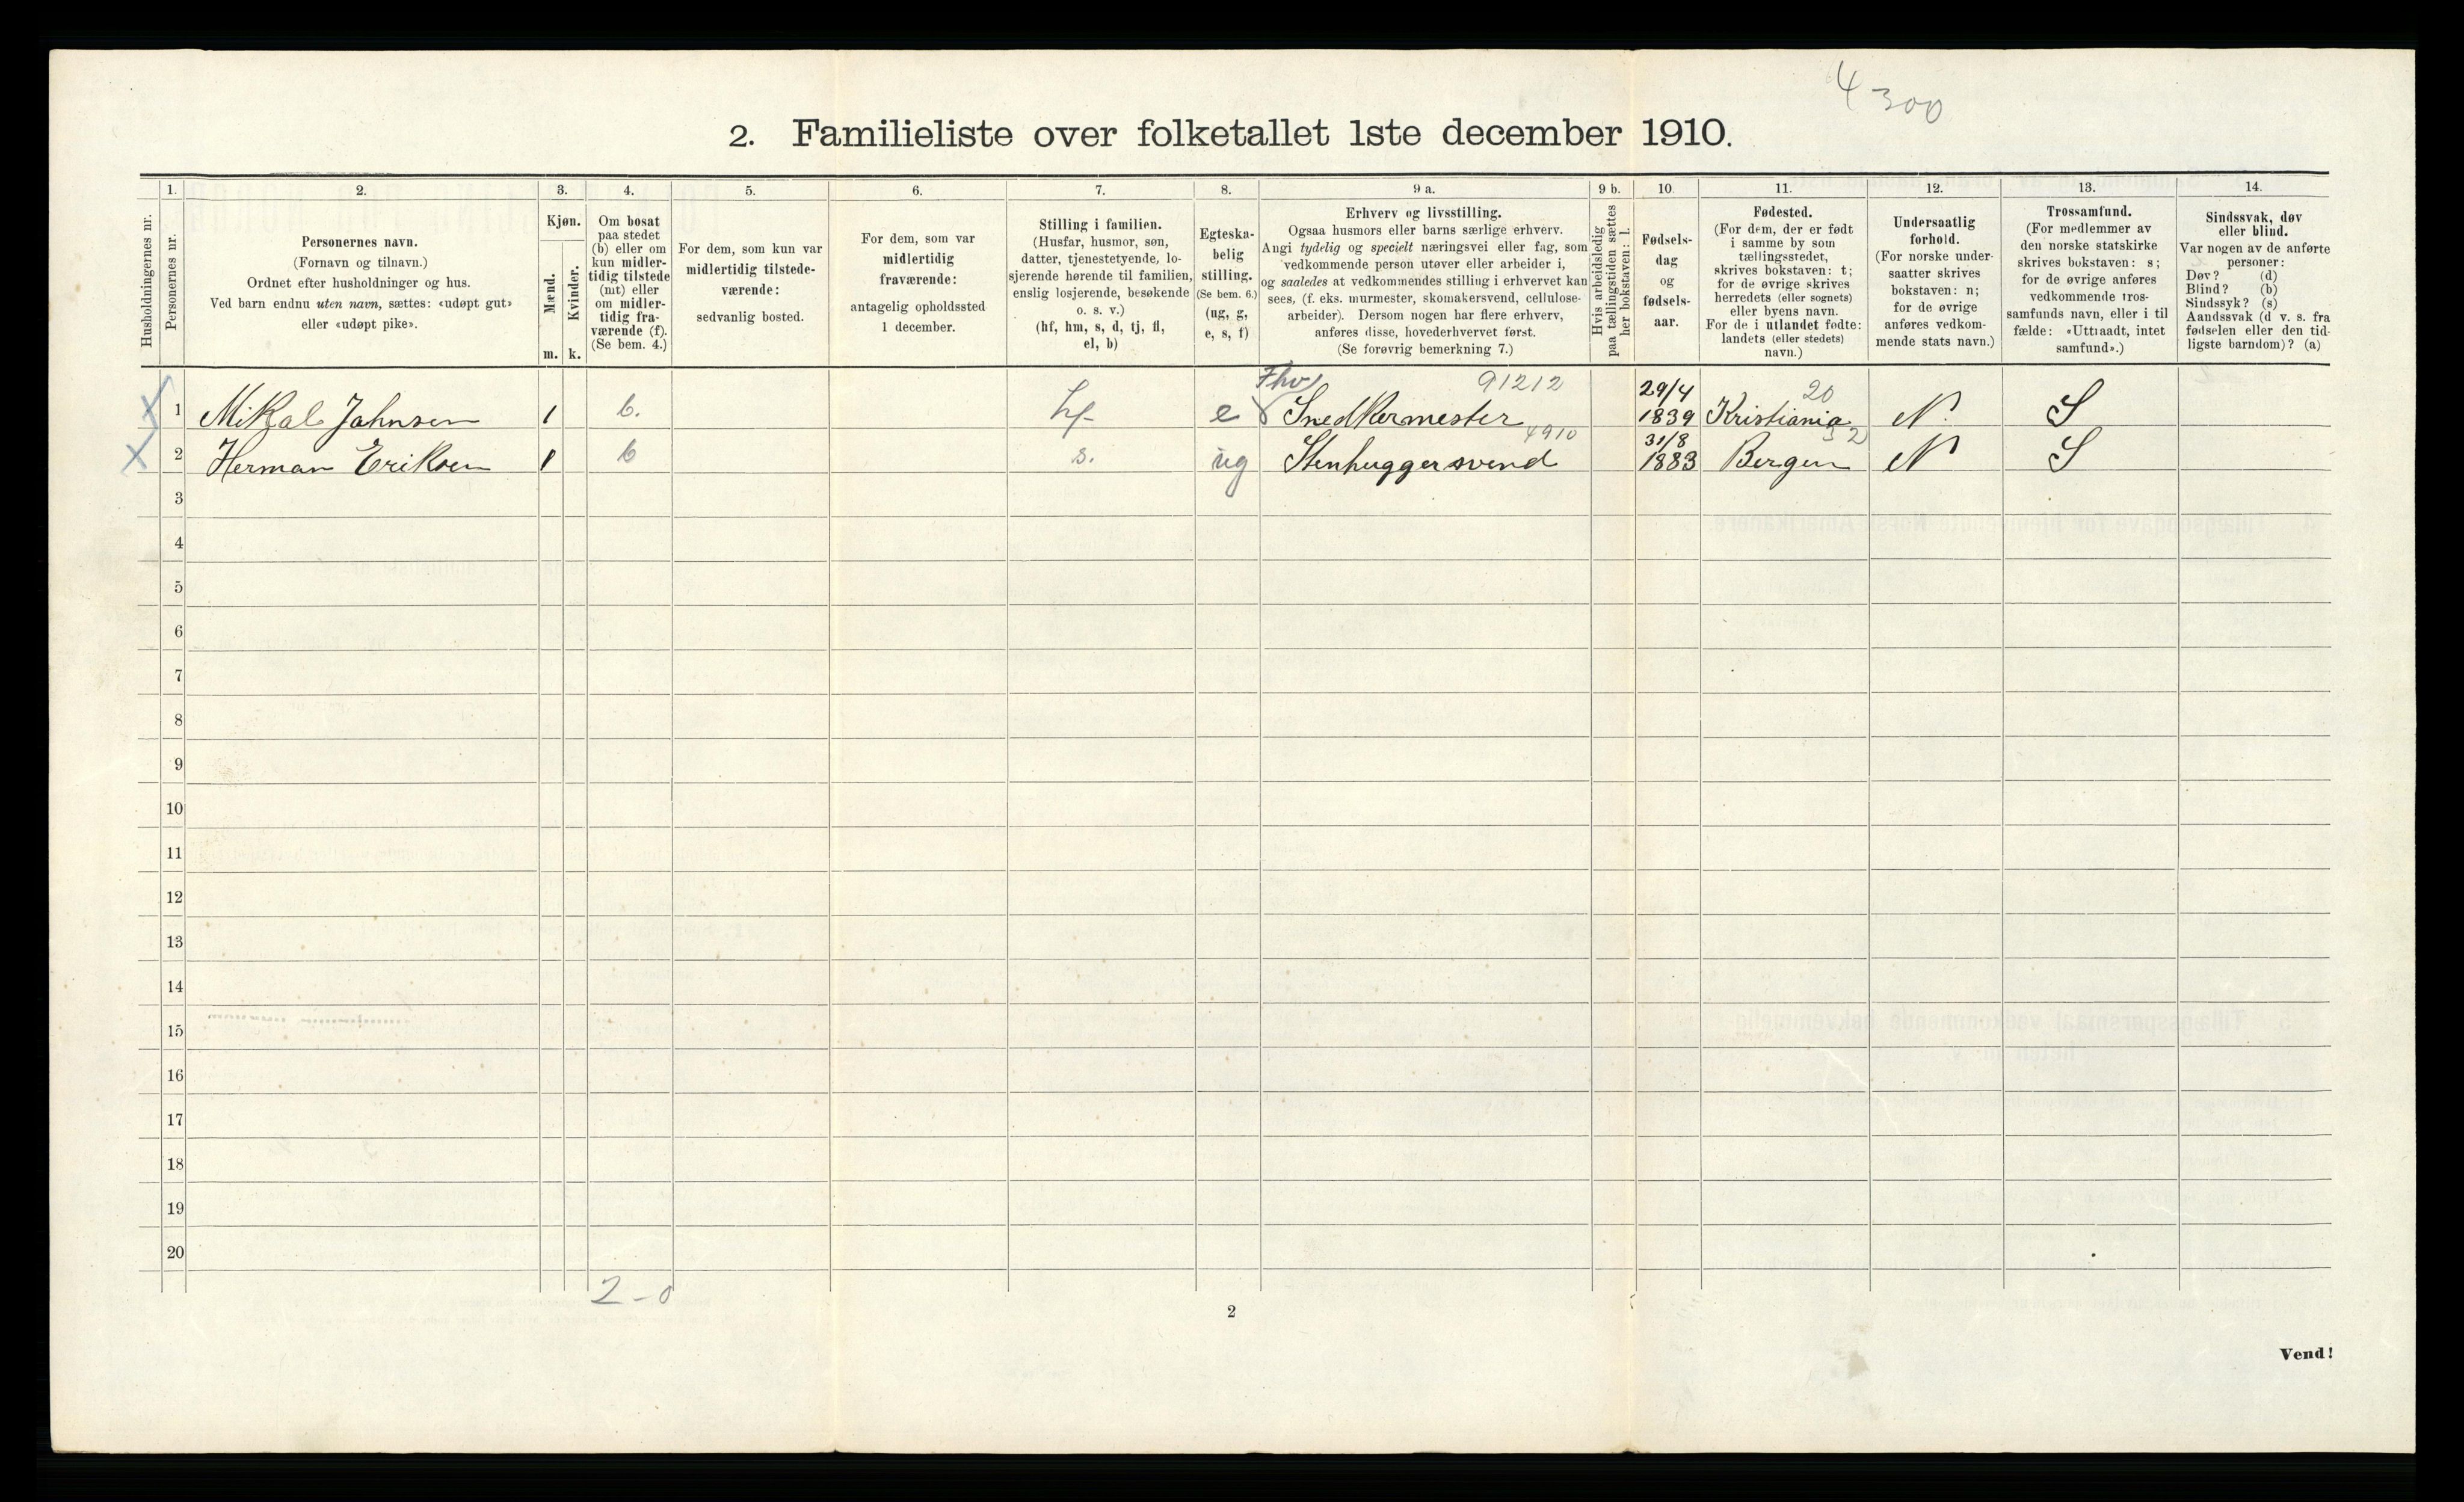 4300
2. Familieliste over folketallet 1ste december 1910.
Husholdningernes nr.
1.
Personernes nr.
2.
Personernes navn.
(Fornavn og tilnavn.)
Ordnet efter husholdninger og hus.
Ved barn endnu uten navn, sættes: «udøpt gut»
eller «udøpt pike».
3.
Kjøn.
Mænd.
Kvinder.
m. k.
4.
Om bosat
paa stedet
(b) eller om
kun midler-
tidig tilstede
(mt) eller
om midler-
tidig fra-
værende (f).
(Se bem. 4.)
5.
For dem, som kun var
midlertidig tilstede-
værende:
sedvanlig bosted.
6.
For dem, som var
midlertidig
fraværende:
antagelig opholdssted
1 december.
7.
Stilling i familien.
(Husfar, husmor, søn,
datter, tjenestetyende, lo-
sjerende hørende til familien,
enslig losjerende, besøkende
o. s. v.)
(hf, hm, s, d, tj, fl,
el, b)
8.
Egteska-
belig
stilling.
(Se bem. 6.)
(ug, g,
e, s, f)
9 a.
Erhverv og livsstilling.
Ogsaa husmors eller barns særlige erhverv.
Angi tydelig og specielt næringsvei eller fag, som
vedkommende person utøver eller arbeider i,
og saaledes at vedkommendes stilling i erhvervet kan
sees, (f. eks. murmester, skomakersvend, cellulose-
arbeider). Dersom nogen har flere erhverv,
anføres disse, hovederhvervet først.
(Se forøvrig bemerkning 7.)
9 b.
Hvis arbeidsledig
paa tællingstiden sættes
her bokstaven: l.
10.
Fødsels-
dag
og
fødsels-
aar.
11.
Fødested.
(For dem, der er født
i samme by som
tællingsstedet,
skrives bokstaven: t;
for de øvrige skrives
herredets (eller sognets)
eller byens navn.
For de i utlandet fødte:
landets (eller stedets)
navn.)
12.
Undersaatlig
forhold.
(For norske under-
saatter skrives
bokstaven: n;
for de øvrige
anføres vedkom-
mende stats navn.)
13.
Trossamfund.
(For medlemmer av
den norske statskirke
skrives bokstaven: s;
for de øvrige anføres
vedkommende tros-
samfunds navn, eller i til
fælde: «Uttraadt, intet
samfund».)
14.
Sindssvak, døv
eller blind.
Var nogen av de anførte
personer:
Døv? (d)
Blind? (b)
Sindssyk? (s)
Aandssvak (d v. s. fra
fødselen eller den tid-
ligste barndom)? (a)
Fhv 91212 29/4 20
X 1 Mikal Jahnsen 1 b. hf. e Snedkermester 1839 Kristiania N. S
4910 31/8 32
X 2 Herman Eriksen 1 b s. ug Stenhuggersvend 1883 Bergen N S
3
4
5
6
7
8
9
10
11
12
13
14
15
16
17
18
19
20
2-0
2
Vend!